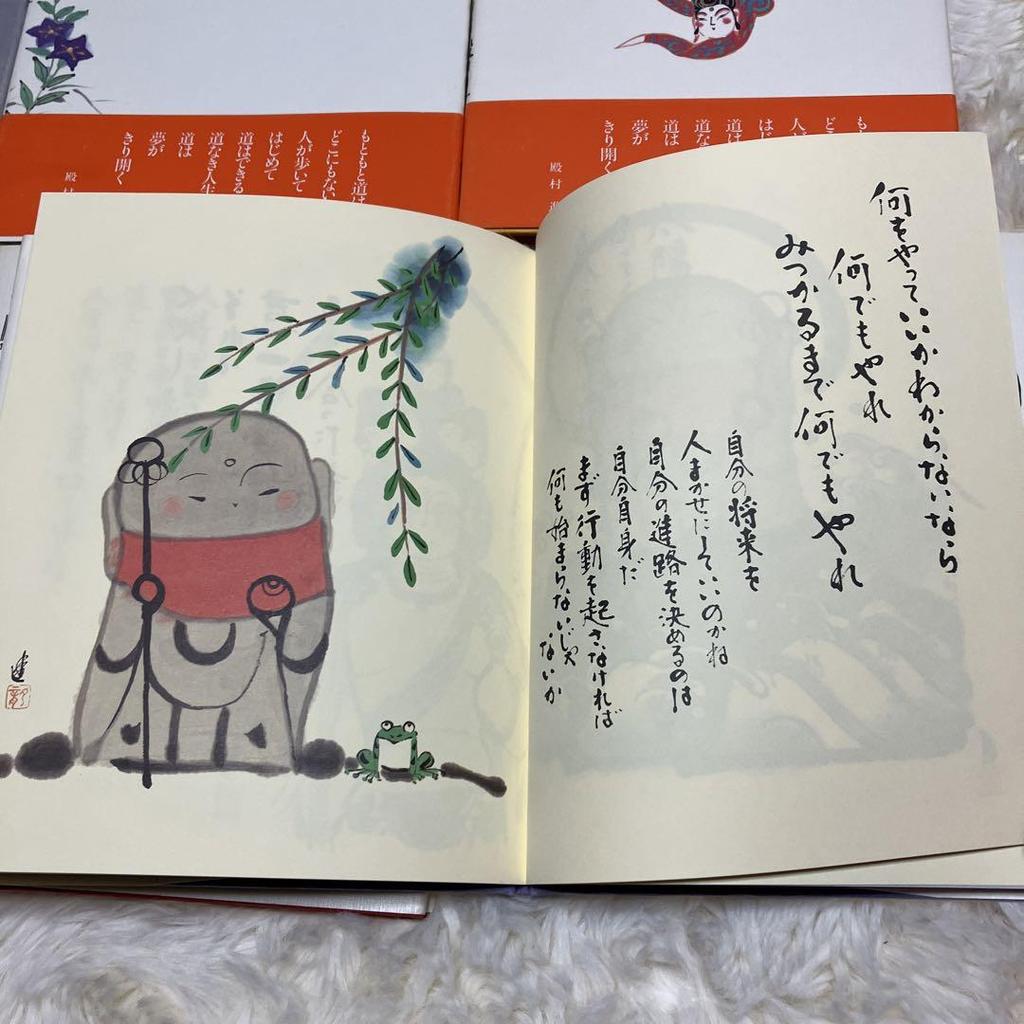 もともと道は
どこにもない
人が歩いて
はじめて
道はできる
道なき人生
道は
夢が
きり開く
殿村
もともと道は
人が
道は
道な
道は
夢が
きり開く
殿村 進
何をやっていいかわからないなら
何でもやれ
みつかるまで何でもやれ
自分の将来を
人まかせにしていいのかね
自分の進路を決めるのは
自分自身だ
まず行動を起さなければ
何も始まらないじゃ
ないか